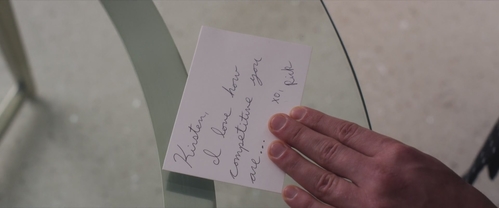 Kirsten,
I love how
competitive you
are...
xo, Rick